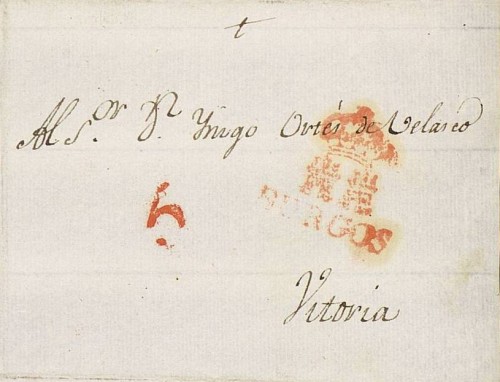 t
Al S.or D.n Ynigo Ortés de Velasco
5
BURGOS
Vitoria